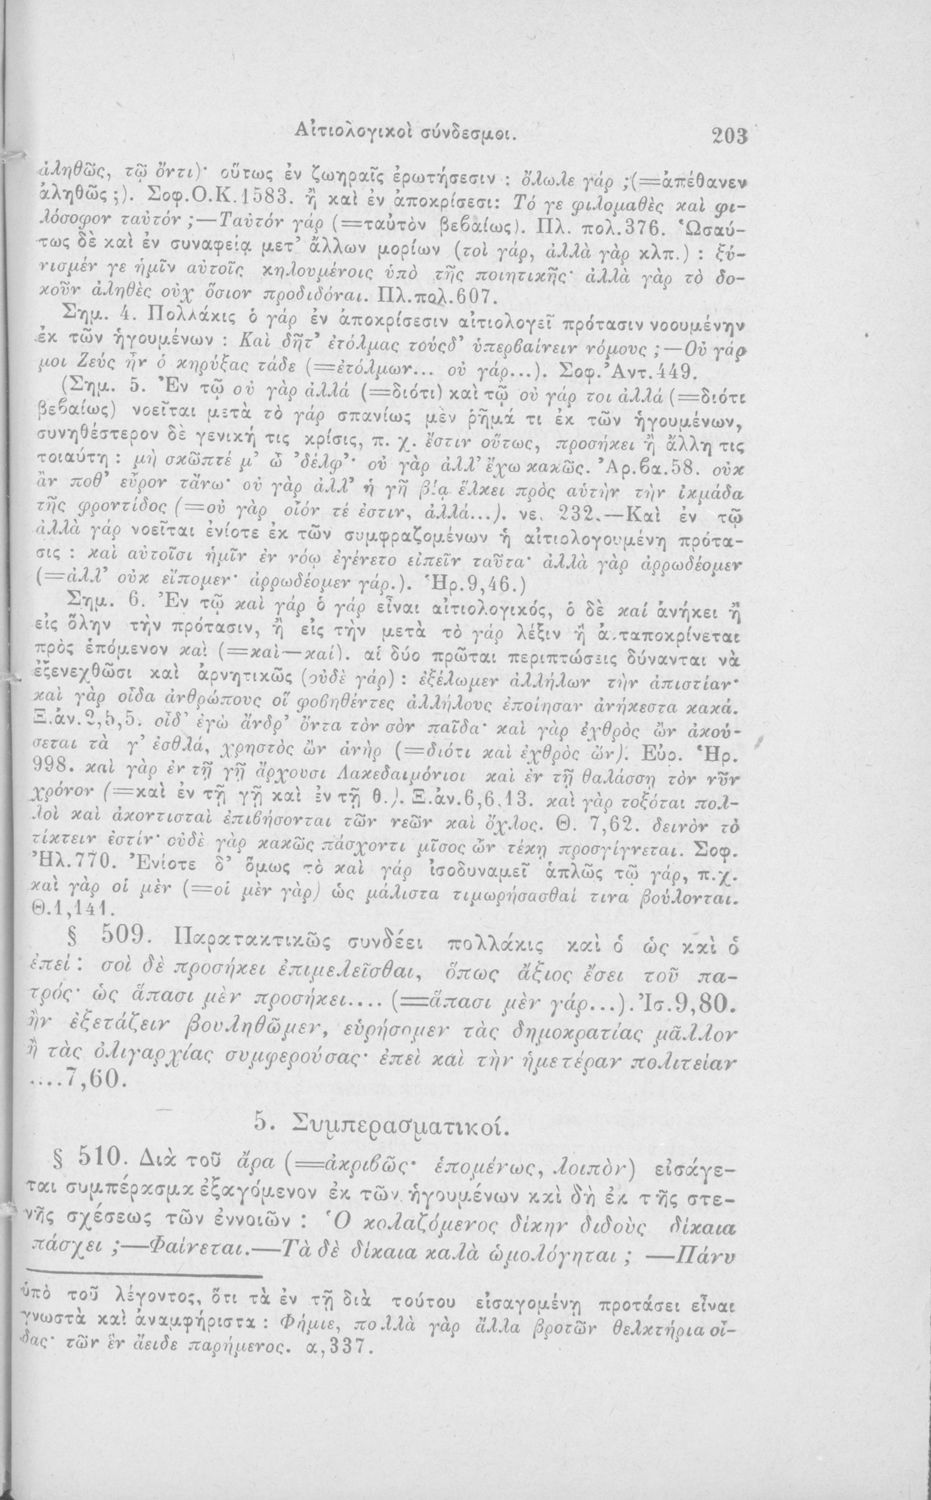 Αἰτιολογικοὶ σύνδεσμοι. 203
ἀληθῶς, τῷ ὄντι)· οὕτως ἐν ζωηραῖς ἐρωτήσεσιν : ὄλωλε γάρ ;(=ἀπέθανεν
ἀληθῶς ;). Σοφ.Ο.Κ.1583. ἢ καὶ ἐν ἀποκρίσεσι: Τό γε φιλομαθὲς καὶ φι-
λόσοφον ταὐτόν ;—Ταὐτόν γάρ (=ταὐτὸν βεβαίως). Πλ. πολ.376. Ὡσαύ-
τως δὲ καὶ ἐν συναφείᾳ μετ’ ἄλλων μορίων (τοὶ γάρ, ἀλλὰ γὰρ κλπ.) : ξύ-
νισμέν γε ἡμῖν αὐτοῖς κηλουμένοις ὑπὸ τῆς ποιητικῆς· ἀλλὰ γὰρ τὸ δο-
κοῦν ἀληθὲς οὐχ ὅσιον προδιδόναι. Πλ.πολ.607.
Σημ. 4. Πολλάκις ὁ γάρ ἐν ἀποκρίσεσιν αἰτιολογεῖ πρότασιν νοουμένην
ἐκ τῶν ἡγουμένων : Καὶ δῆτ’ ἐτόλμας τούςδ’ ὑπερβαίνειν νόμους ;—Οὐ γάρ
μοι Ζεύς ἦν ὁ κηρύξας τάδε (=ἐτόλμων... οὐ γάρ...). Σοφ.Ἀντ.449.
(Σημ. 5. Ἐν τῷ οὐ γὰρ ἀλλά (=διότι) καὶ τῷ οὐ γάρ τοι ἀλλά (=διότι
βεβαίως) νοεῖται μετὰ τὸ γάρ σπανίως μὲν ῥῆμά τι ἐκ τῶν ἡγουμένων,
συνηθέστερον δὲ γενική τις κρίσις, π. χ. ἔστιν οὕτως, προσήκει ἢ ἄλλη τις
τοιαύτη : μὴ σκῶπτέ μ’ ὦ ’δέλφ’· οὐ γὰρ ἀλλ’ ἔχω κακῶς. Ἀρ.βα.58. οὐκ
ἂν ποθ’ εὗρον τἄνω· οὐ γὰρ ἀλλ’ ἡ γῆ βίᾳ ἕλκει πρὸς αὑτὴν τὴν ἰκμάδα
τῆς φροντίδος (=οὐ γὰρ οἷόν τέ ἐστιν, ἀλλά...). νε. 232.—Καὶ ἐν τῷ
ἀλλὰ γάρ νοεῖται ἐνίοτε ἐκ τῶν συμφραζομένων ἡ αἰτιολογουμένη πρότα-
σις : καὶ αὐτοῖσι ἡμῖν ἐν νόῳ ἐγένετο εἰπεῖν ταῦτα· ἀλλὰ γὰρ ἀρρωδέομεν
(=ἀλλ’ οὐκ εἴπομεν· ἀρρωδέομεν γάρ.). Ἡρ.9,46.)
Σημ. 6. Ἐν τῷ καὶ γάρ ὁ γάρ εἶναι αἰτιολογικός, ὁ δὲ καί ἀνήκει ἢ
εἰς ὅλην τὴν πρότασιν, ἢ εἰς τὴν μετὰ τὸ γάρ λέξιν ἢ ἀνταποκρίνεται
πρὸς ἑπόμενον καὶ (=καὶ—καί). αἱ δύο πρῶται περιπτώσεις δύνανται νὰ
ἐξενεχθῶσι καὶ ἀρνητικῶς (οὐδὲ γάρ) : ἐξέλωμεν ἀλλήλων τὴν ἀπιστίαν·
καὶ γὰρ οἶδα ἀνθρώπους οἳ φοβηθέντες ἀλλήλους ἐποίησαν ἀνήκεστα κακά.
Ξ.ἀν.2,5,5. οἶδ’ ἐγὼ ἄνδρ’ ὄντα τὸν σὸν παῖδα· καὶ γὰρ ἐχθρὸς ὢν ἀκού-
σεται τὰ γ’ ἐσθλά, χρηστὸς ὢν ἀνήρ (=διότι καὶ ἐχθρὸς ὤν). Εὐρ. Ἡρ.
998. καὶ γὰρ ἐν τῇ γῇ ἄρχουσι Λακεδαιμόνιοι καὶ ἐν τῇ θαλάσσῃ τὸν νῦν
χρόνον (=καὶ ἐν τῇ γῇ καὶ ἐν τῇ θ.). Ξ.ἀν.6,6,13. καὶ γὰρ τοξόται πολ-
λοὶ καὶ ἀκοντισταὶ ἐπιβήσονται τῶν νεῶν καὶ ὄχλος. Θ. 7,62. δεινὸν τὸ
τίκτειν ἐστίν· οὐδὲ γὰρ κακῶς πάσχοντι μῖσος ὧν τέκῃ προσγίγνεται. Σοφ.
Ἠλ.770. Ἐνίοτε δ’ ὅμως τὸ καὶ γάρ ἰσοδυναμεῖ ἁπλῶς τῷ γάρ, π.χ.
καὶ γὰρ οἱ μὲν (=οἱ μὲν γὰρ) ὡς μάλιστα τιμωρήσασθαί τινα βούλονται.
Θ.1,141.
§ 509. Παρατακτικῶς συνδέει πολλάκις καὶ ὁ ὡς καὶ ὁ
ἐπεί : σοὶ δὲ προσήκει ἐπιμελεῖσθαι, ὅπως ἄξιος ἔσει τοῦ πα-
τρός· ὡς ἅπασι μὲν προσήκει.... (=ἅπασι μὲν γάρ...).Ἰσ.9,80.
ἢν ἐξετάζειν βουληθῶμεν, εὑρήσομεν τὰς δημοκρατίας μᾶλλον
ἢ τὰς ὀλιγαρχίας συμφερούσας· ἐπεὶ καὶ τὴν ἡμετέραν πολιτείαν
....7,60.
5. Συμπερασματικοί.
§ 510. Διὰ τοῦ ἄρα (=ἀκριβῶς· ἑπομένως, λοιπὸν) εἰσάγε-
ται συμπέρασμα ἐξαγόμενον ἐκ τῶν ἡγουμένων καὶ δὴ ἐκ τῆς στε-
νῆς σχέσεως τῶν ἐννοιῶν : Ὁ κολαζόμενος δίκην διδοὺς δίκαια
πάσχει ;—Φαίνεται.—Τὰ δὲ δίκαια καλὰ ὡμολόγηται ; —Πάνυ
ὑπὸ τοῦ λέγοντος, ὅτι τὰ ἐν τῇ διὰ τούτου εἰσαγομένῃ προτάσει εἶναι
γνωστὰ καὶ ἀναμφήριστα : Φήμιε, πολλὰ γὰρ ἄλλα βροτῶν θελκτήρια οἶ-
δας· τῶν ἓν ἄειδε παρήμενος. α,337.